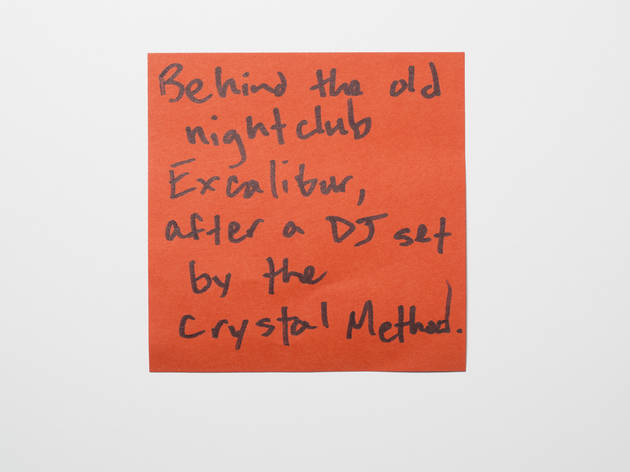 Behind the old
nightclub
Excalibur,
after a DJ set
by the
Crystal Method.